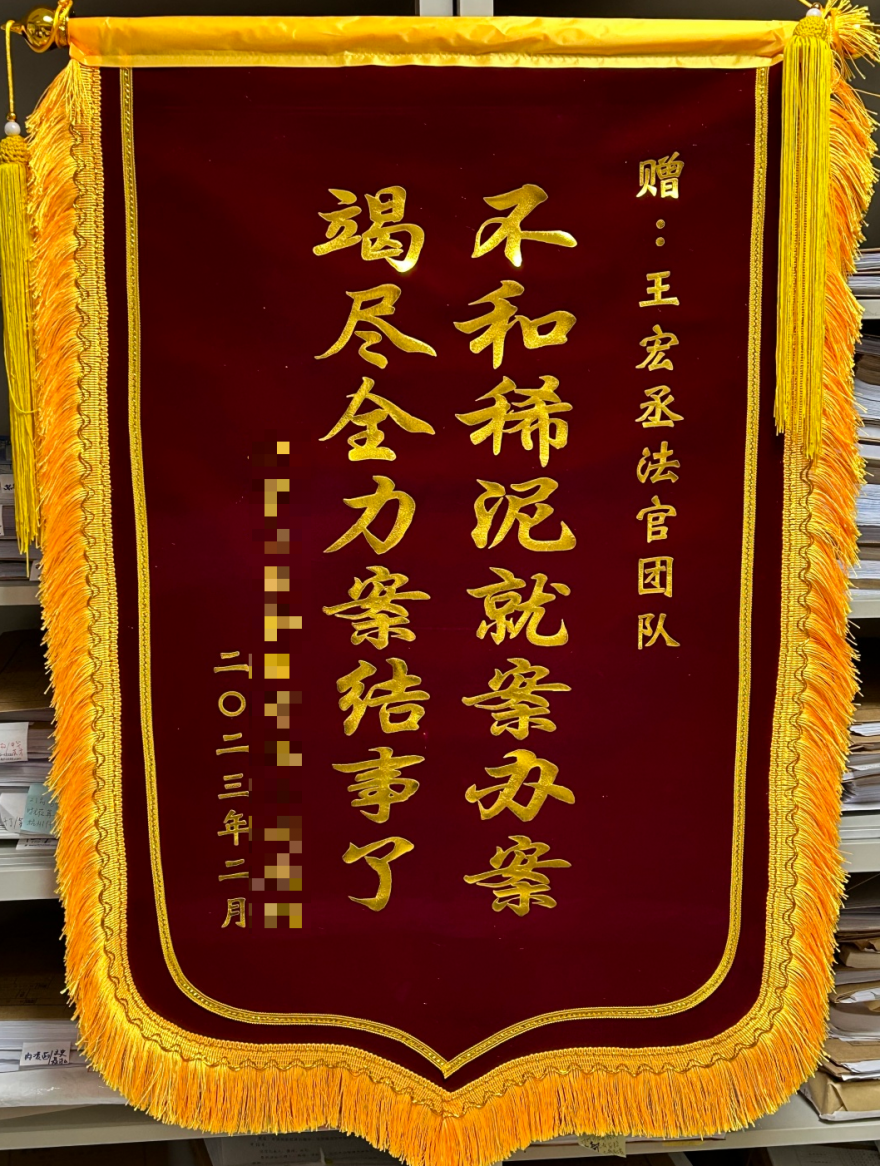 赠：王宏丞法官团队
不和稀泥就案办案
竭尽全力案结事了
二〇二三年二月